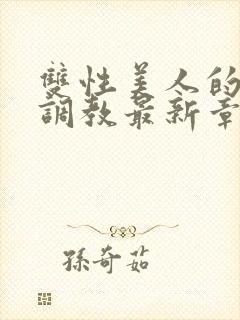 雙性美人的
調教最新章
孫奇茹